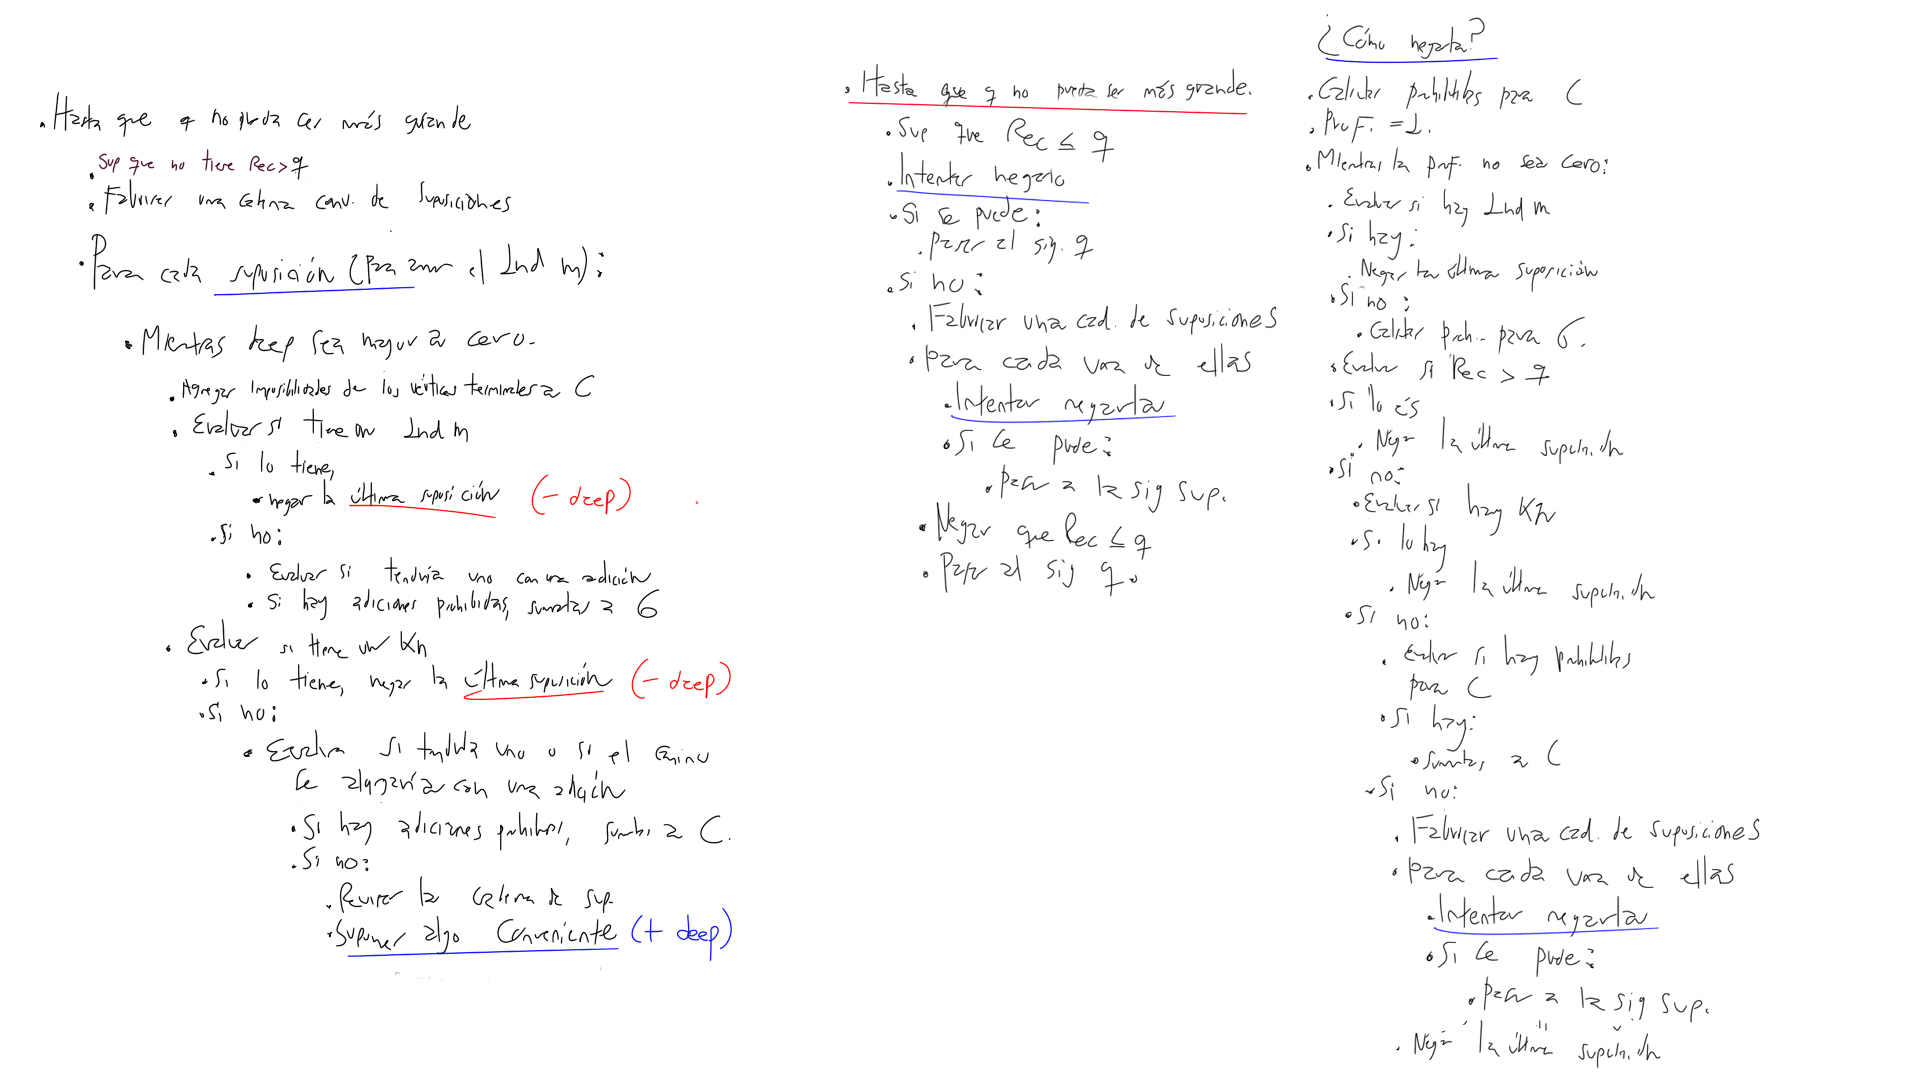 . Hasta que q no pueda ser más grande
. Sup que no tiene Rec > q
. Fabricar una cadena conv. de suposiciones
. Para cada suposición (para el Ind m):
. Mientras deep sea mayor a cero.
. Agregar imposibilidades de los vértices terminales a C
. Evaluar si tiene un Ind m
. Si lo tiene,
. negar la última suposición (- deep)
. Si no:
. Evaluar si tendría uno con una adición
. Si hay adiciones prohibidas, sumarlas a G
. Evaluar si tiene un Kn
. Si lo tiene, negar la última suposición (- deep)
. Si no:
. Evaluar si tendría uno o si el camino
se alargaría con una adición
. Si hay adiciones prohibidas, sumar a C.
. Si no:
. Revisar la cadena de sup.
. Suponer algo conveniente (+ deep)
. Hasta que q no pueda ser más grande.
. Sup que Rec ≤ q
. Intentar negarlo
. Si se puede:
. pasar al sig. q
. Si no:
. Fabricar una cad. de suposiciones
. para cada una de ellas
. Intentar negarla
. Si se puede:
. pasar a la sig sup.
. Negar que Rec ≤ q
. Pasar al sig q.
¿Cómo negarla?
. Calcular prohibidas para C
. Prof. = 1.
. Mientras la prof. no sea cero:
. Evaluar si hay Ind m
. Si hay:
. Negar la última suposición
. Si no:
. Calcular proh. para G.
. Evaluar si Rec > q
. Si lo es
. Negar la última suposición
. Si no:
. Evaluar si hay Kn
. Si lo hay
. Negar la última suposición
. Si no:
. Evaluar si hay prohibidas
para C
. Si hay:
. sumarlas a C
. Si no:
. Fabricar una cad. de suposiciones
. para cada una de ellas
. Intentar negarla
. Si se puede:
. pasar a la sig sup.
. Negar la última suposición